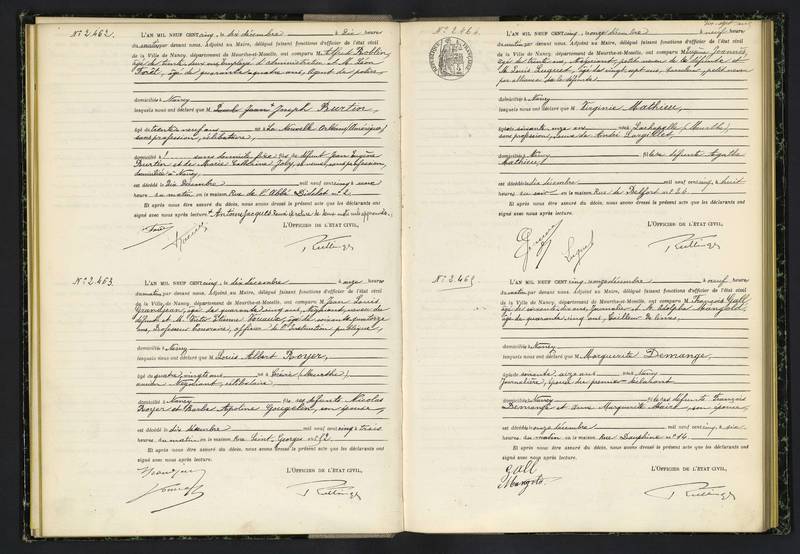 N° 2.462.
L'AN MIL NEUF CENT cinq, le dix décembre à Dix heures
du matin par devant nous, Adjoint au Maire, délégué faisant fonctions d'officier de l'état civil
de la Ville de Nancy, département de Meurthe-et-Moselle, ont comparu M. Alfred Boblin,
âgé de trente deux ans, employé d'administration et M. Léon
Forêt, âgé de quarante quatre ans, agent de police,
domiciliés à Nancy
lesquels nous ont déclaré que M. Joseph Burtin,
âgé de trente neuf ans né à La Nouvelle Orléans (Amérique)
sans profession, célibataire,
domicilié à sans domicile fixe fils de défunt Jean Eugène
Burtin et de Marie Catherine Joly, sa veuve, sans profession,
domiciliée à Nancy,
est décédé le Dix Décembre mil neuf cent cinq à une
heure du matin en la maison Rue de l'Abbé Didelot n° 2.
Et après nous être assuré du décès, nous avons dressé le présent acte que les déclarants ont
signé avec nous après lecture.
L'OFFICIER DE L'ÉTAT CIVIL,
N° 2.463.
L'AN MIL NEUF CENT cinq, le dix décembre à onze heures
du matin par devant nous, Adjoint au Maire, délégué faisant fonctions d'officier de l'état civil
de la Ville de Nancy, département de Meurthe-et-Moselle, ont comparu M. Jean Louis
Grandjean, âgé de quarante cinq ans, Négociant, neveu du
défunt et M. Victor Etienne, âgé de soixante quatorze
ans, Professeur honoraire, officier de l'Instruction publique,
domiciliés à Nancy
lesquels nous ont déclaré que M. Louis Albert Royer,
âgé de quatre vingts ans né à Crévic (Meurthe),
ancien Négociant, célibataire
domicilié à Nancy fils des défunts Nicolas
Royer et Barbe Apoline Gougelin, son épouse
est décédé le dix décembre mil neuf cent cinq à trois
heures du matin en la maison Rue Saint Georges n° 92
Et après nous être assuré du décès, nous avons dressé le présent acte que les déclarants ont
signé avec nous après lecture.
L'OFFICIER DE L'ÉTAT CIVIL,
N° 2.464.
L'AN MIL NEUF CENT cinq, onze décembre à neuf heures
du matin par devant nous, Adjoint au Maire, délégué faisant fonctions d'officier de l'état civil
de la Ville de Nancy, département de Meurthe-et-Moselle, ont comparu M. Eugène
âgé de trente ans, Négociant, petit neveu de la défunte et
M. Louis Luquet, âgé de vingt sept ans, petit neveu
par alliance de la défunte,
domiciliés à Nancy
lesquels nous ont déclaré que M. Virginie Mathieu,
âgée de soixante onze ans née à Lachapelle (Meurthe),
sans profession, veuve de André Largillet
domiciliée à Nancy fille de défunte Agathe
Mathieu,
est décédée le dix décembre mil neuf cent cinq à huit
heures du soir en la maison Rue de Belfort n° 26.
Et après nous être assuré du décès, nous avons dressé le présent acte que les déclarants ont
signé avec nous après lecture.
L'OFFICIER DE L'ÉTAT CIVIL,
Luquet
N° 2.465
L'AN MIL NEUF CENT cinq, onze décembre à neuf heures
du matin par devant nous, Adjoint au Maire, délégué faisant fonctions d'officier de l'état civil
de la Ville de Nancy, département de Meurthe-et-Moselle, ont comparu M. François Gall,
âgé de soixante dix ans, Journalier et M. Adolphe Mangold,
âgé de quarante cinq ans, Tailleur de livres,
domiciliés à Nancy
lesquels nous ont déclaré que M. Marguerite Demange,
âgée de soixante seize ans née à Nancy
Journalière, épouse du premier déclarant
domiciliée à Nancy fille des défunts François
Demange et Anne Marguerite Maire, son épouse,
est décédée le onze décembre mil neuf cent cinq à six
heures du matin en la maison Rue Dauphine n° 14
Et après nous être assuré du décès, nous avons dressé le présent acte que les déclarants ont
signé avec nous après lecture.
L'OFFICIER DE L'ÉTAT CIVIL,
Gall